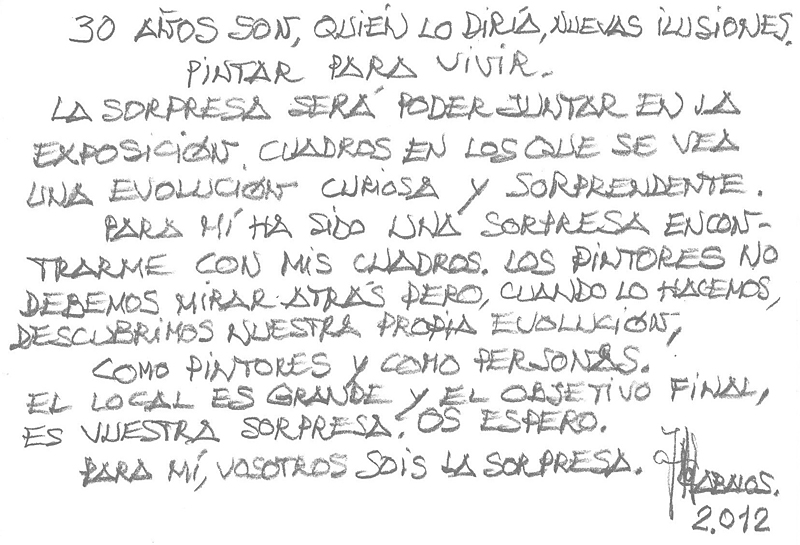 30 AÑOS SON, QUIÉN LO DIRÍA, NUEVAS ILUSIONES.
PINTAR PARA VIVIR.
LA SORPRESA SERÁ PODER JUNTAR EN LA
EXPOSICIÓN, CUADROS EN LOS QUE SE VEA
UNA EVOLUCIÓN CURIOSA Y SORPRENDENTE.
PARA MÍ HA SIDO UNA SORPRESA ENCON-
TRARME CON MIS CUADROS. LOS PINTORES NO
DEBEMOS MIRAR ATRÁS PERO, CUANDO LO HACEMOS,
DESCUBRIMOS NUESTRA PROPIA EVOLUCIÓN,
COMO PINTORES Y COMO PERSONAS.
EL LOCAL ES GRANDE Y EL OBJETIVO FINAL,
ES VUESTRA SORPRESA. OS ESPERO.
PARA MÍ, VOSOTROS SOIS LA SORPRESA.
2.012